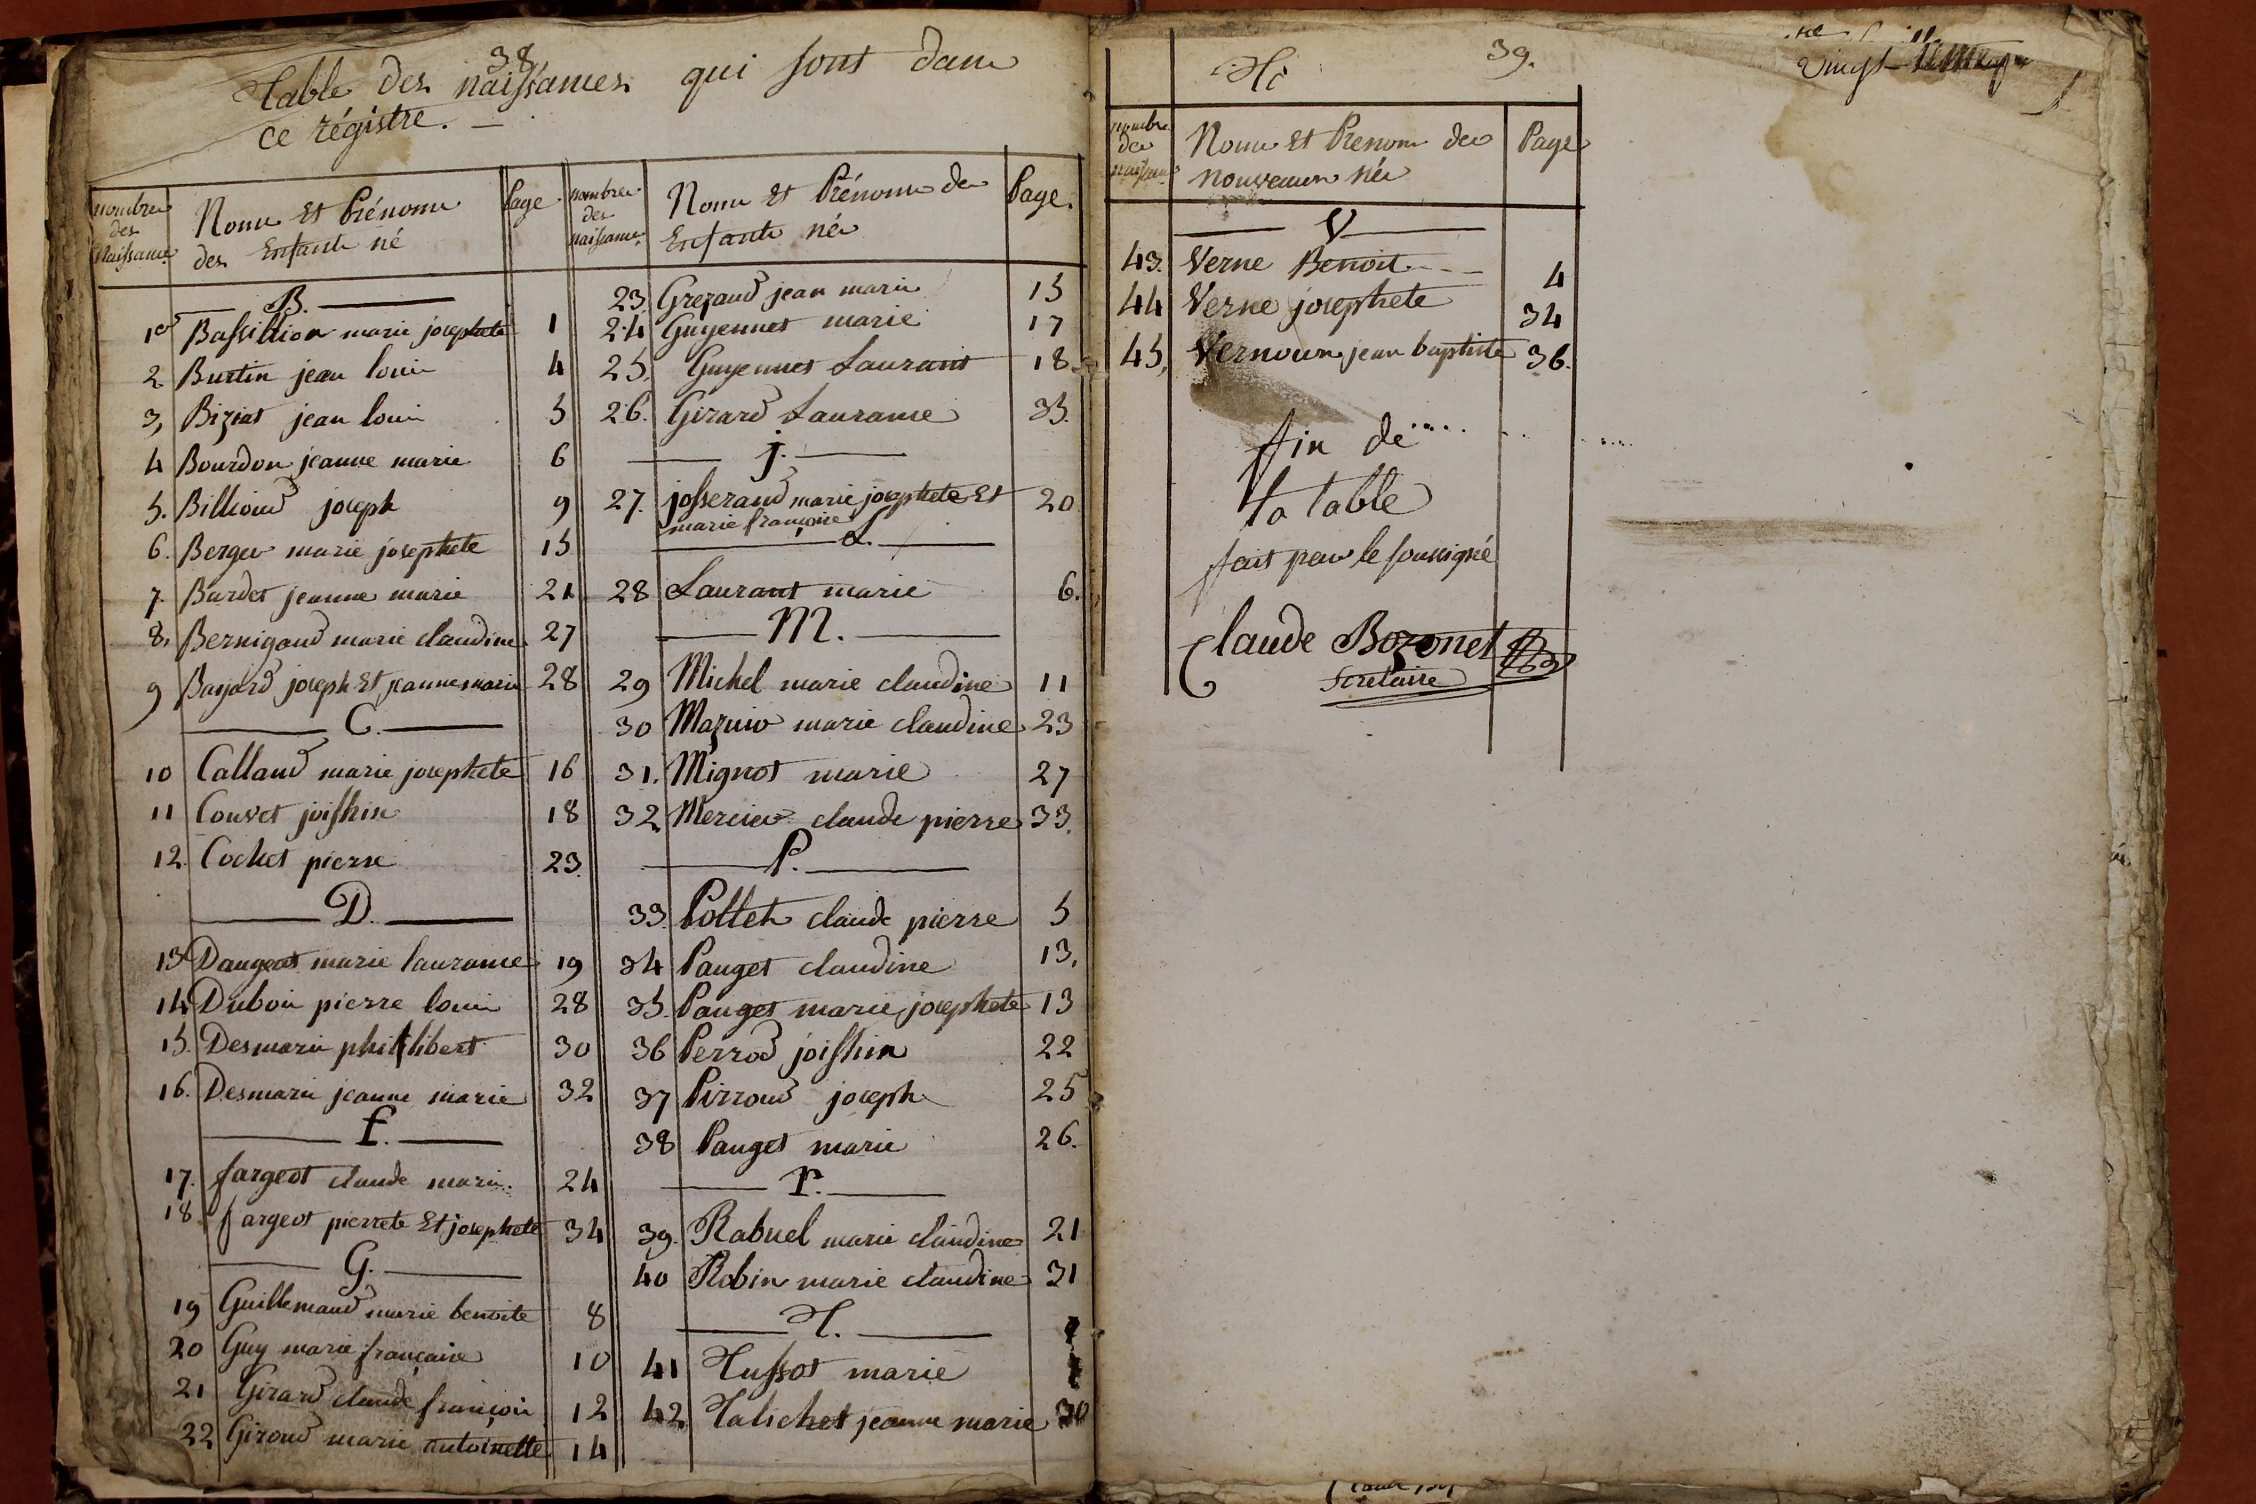 38
Table des naissances qui sont dans
ce régistre. —
nombres des Naissances
Noms Et Prénoms des Enfants né
Page
B.
1er Bassillion marie josephete 1
2 Burtin jean louis 4
3, Biziat jean louis 5
4 Bourdon jeanne marie 6
5. Billioud joseph 9
6. Berger marie josephete 15
7. Bardet jeanne marie 21
8, Bernigaud marie claudine 27
9 Bayard joseph Et jeanne marie 28
C.
10 Calland marie josephete 16
11 Couvet joishin 18
12. Cochet pierre 23.
D.
13 Daugeat marie laurance 19
14 Dubois pierre louis 28
15. Desmaris philibert 30
16. Desmaris jeanne marie 32
f.
17. fargeot claude marie 24
18. fargeot pierrete Et josephete 34
G.
19 Guillemaud marie benoite 8
20 Guy marie françoise 10
21 Girard claude françois 12
22 Giroud marie antoinette 14
nombres des naissances
Noms Et Prénoms des Enfants nés
Page.
23. Grezaud jean marie 15
24 Guyennet marie 17
25, Guyennet Laurant 18
26. Girard Laurance 35.
j.
27. josserand marie josephete Et 20
marie françoise
L.
28 Laurant marie 6.
M.
29 Michel marie claudine 11
30 Mazuir marie claudine 23
31. Mignot marie 27
32 Mercier claude pierre 33.
P.
33. Pollet claude pierre 5
34 Pauget claudine 13,
35. Pauget marie josephete 13
36 Perrod joishin 22
37 Pirroud joseph 25
38 Pauget marie 26.
r.
39. Rabuel marie claudine 21
40 Robin marie claudine 31
T.
41 Tussot marie
42 Talichet jeanne marie 30
39.
nombre des naissances
Noms Et Prenoms des nouveaux nés
Page
V
43. Verne Benoit 4
44 Verne josephete 34
45, Vernoux jean baptiste 36.
fin de
la table
fait par le soussigné
Claude Bozonet
Secretaire
vingt